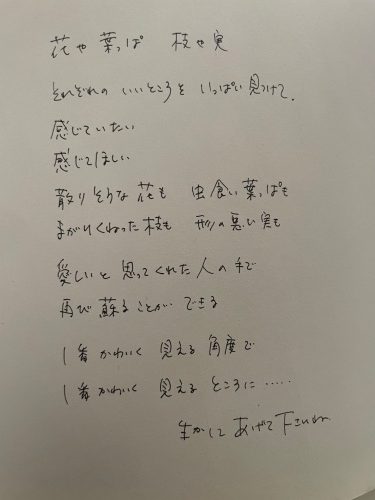 花や葉っぱ 枝や実
それぞれの いいところを いっぱい見つけて、
感じていたい
感じてほしい
散りそうな花も 虫食い葉っぱも
まがりくねった枝も 形の悪い実も
愛しいと思ってくれた人の手で
再び蘇ることができる
1番かわいく 見える角度で
1番かわいく 見えるところに‥‥‥
生かして あげて下さいね